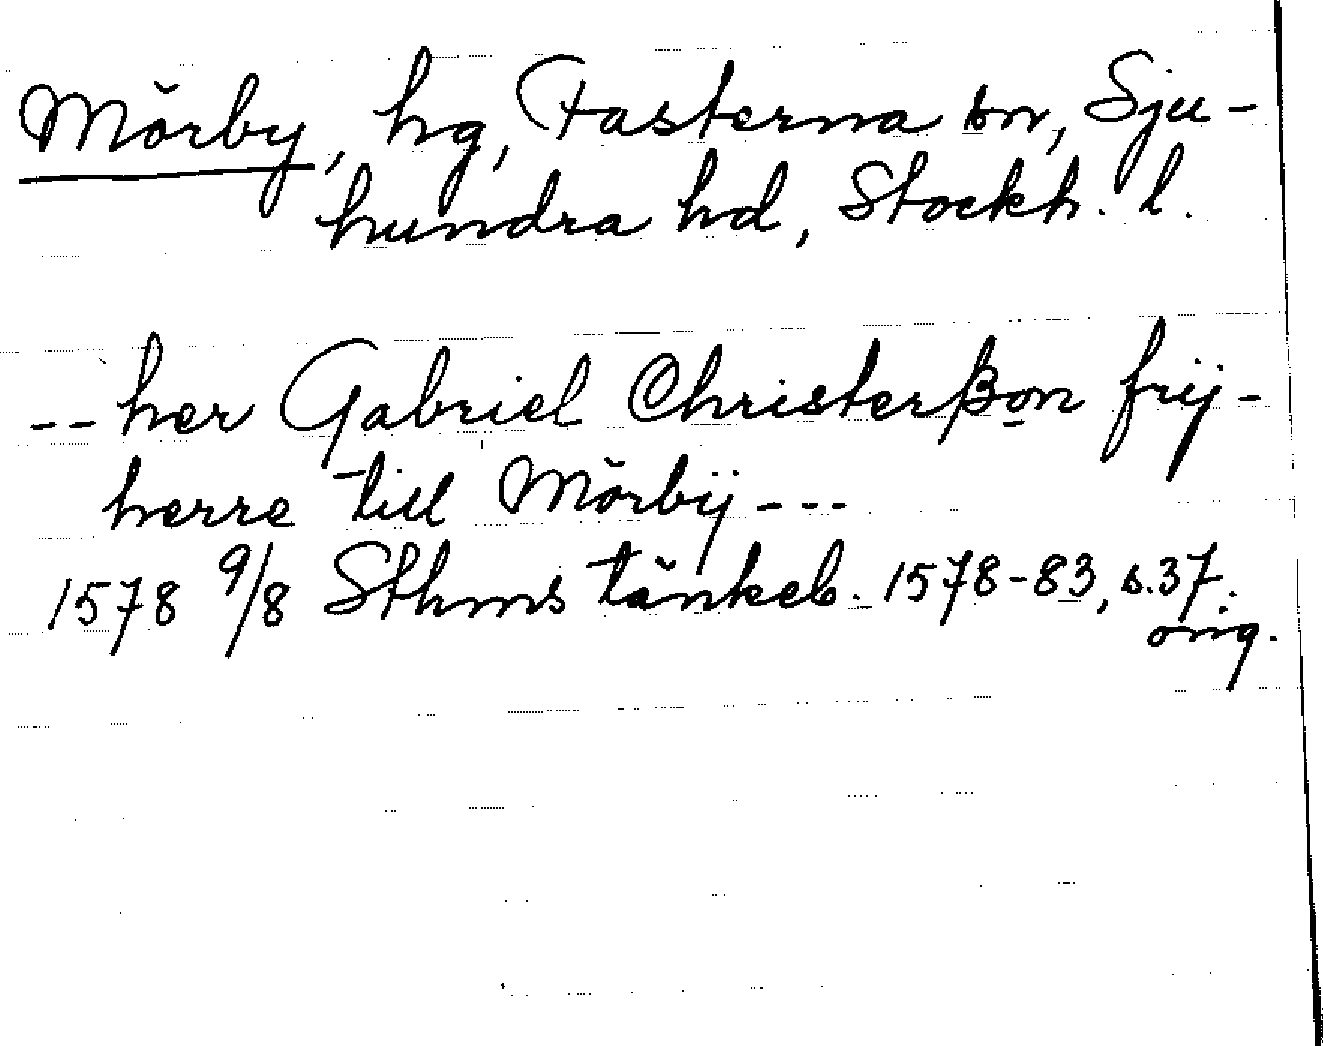 Mörby, hg, Fasterna sn, Sju-
hundra hd, Stockh. l.
-- her Gabriel Christerßon frij-
herre till Mörbij ---
1578 9/8 Sthms tänkeb. 1578-83, s. 37.
orig.